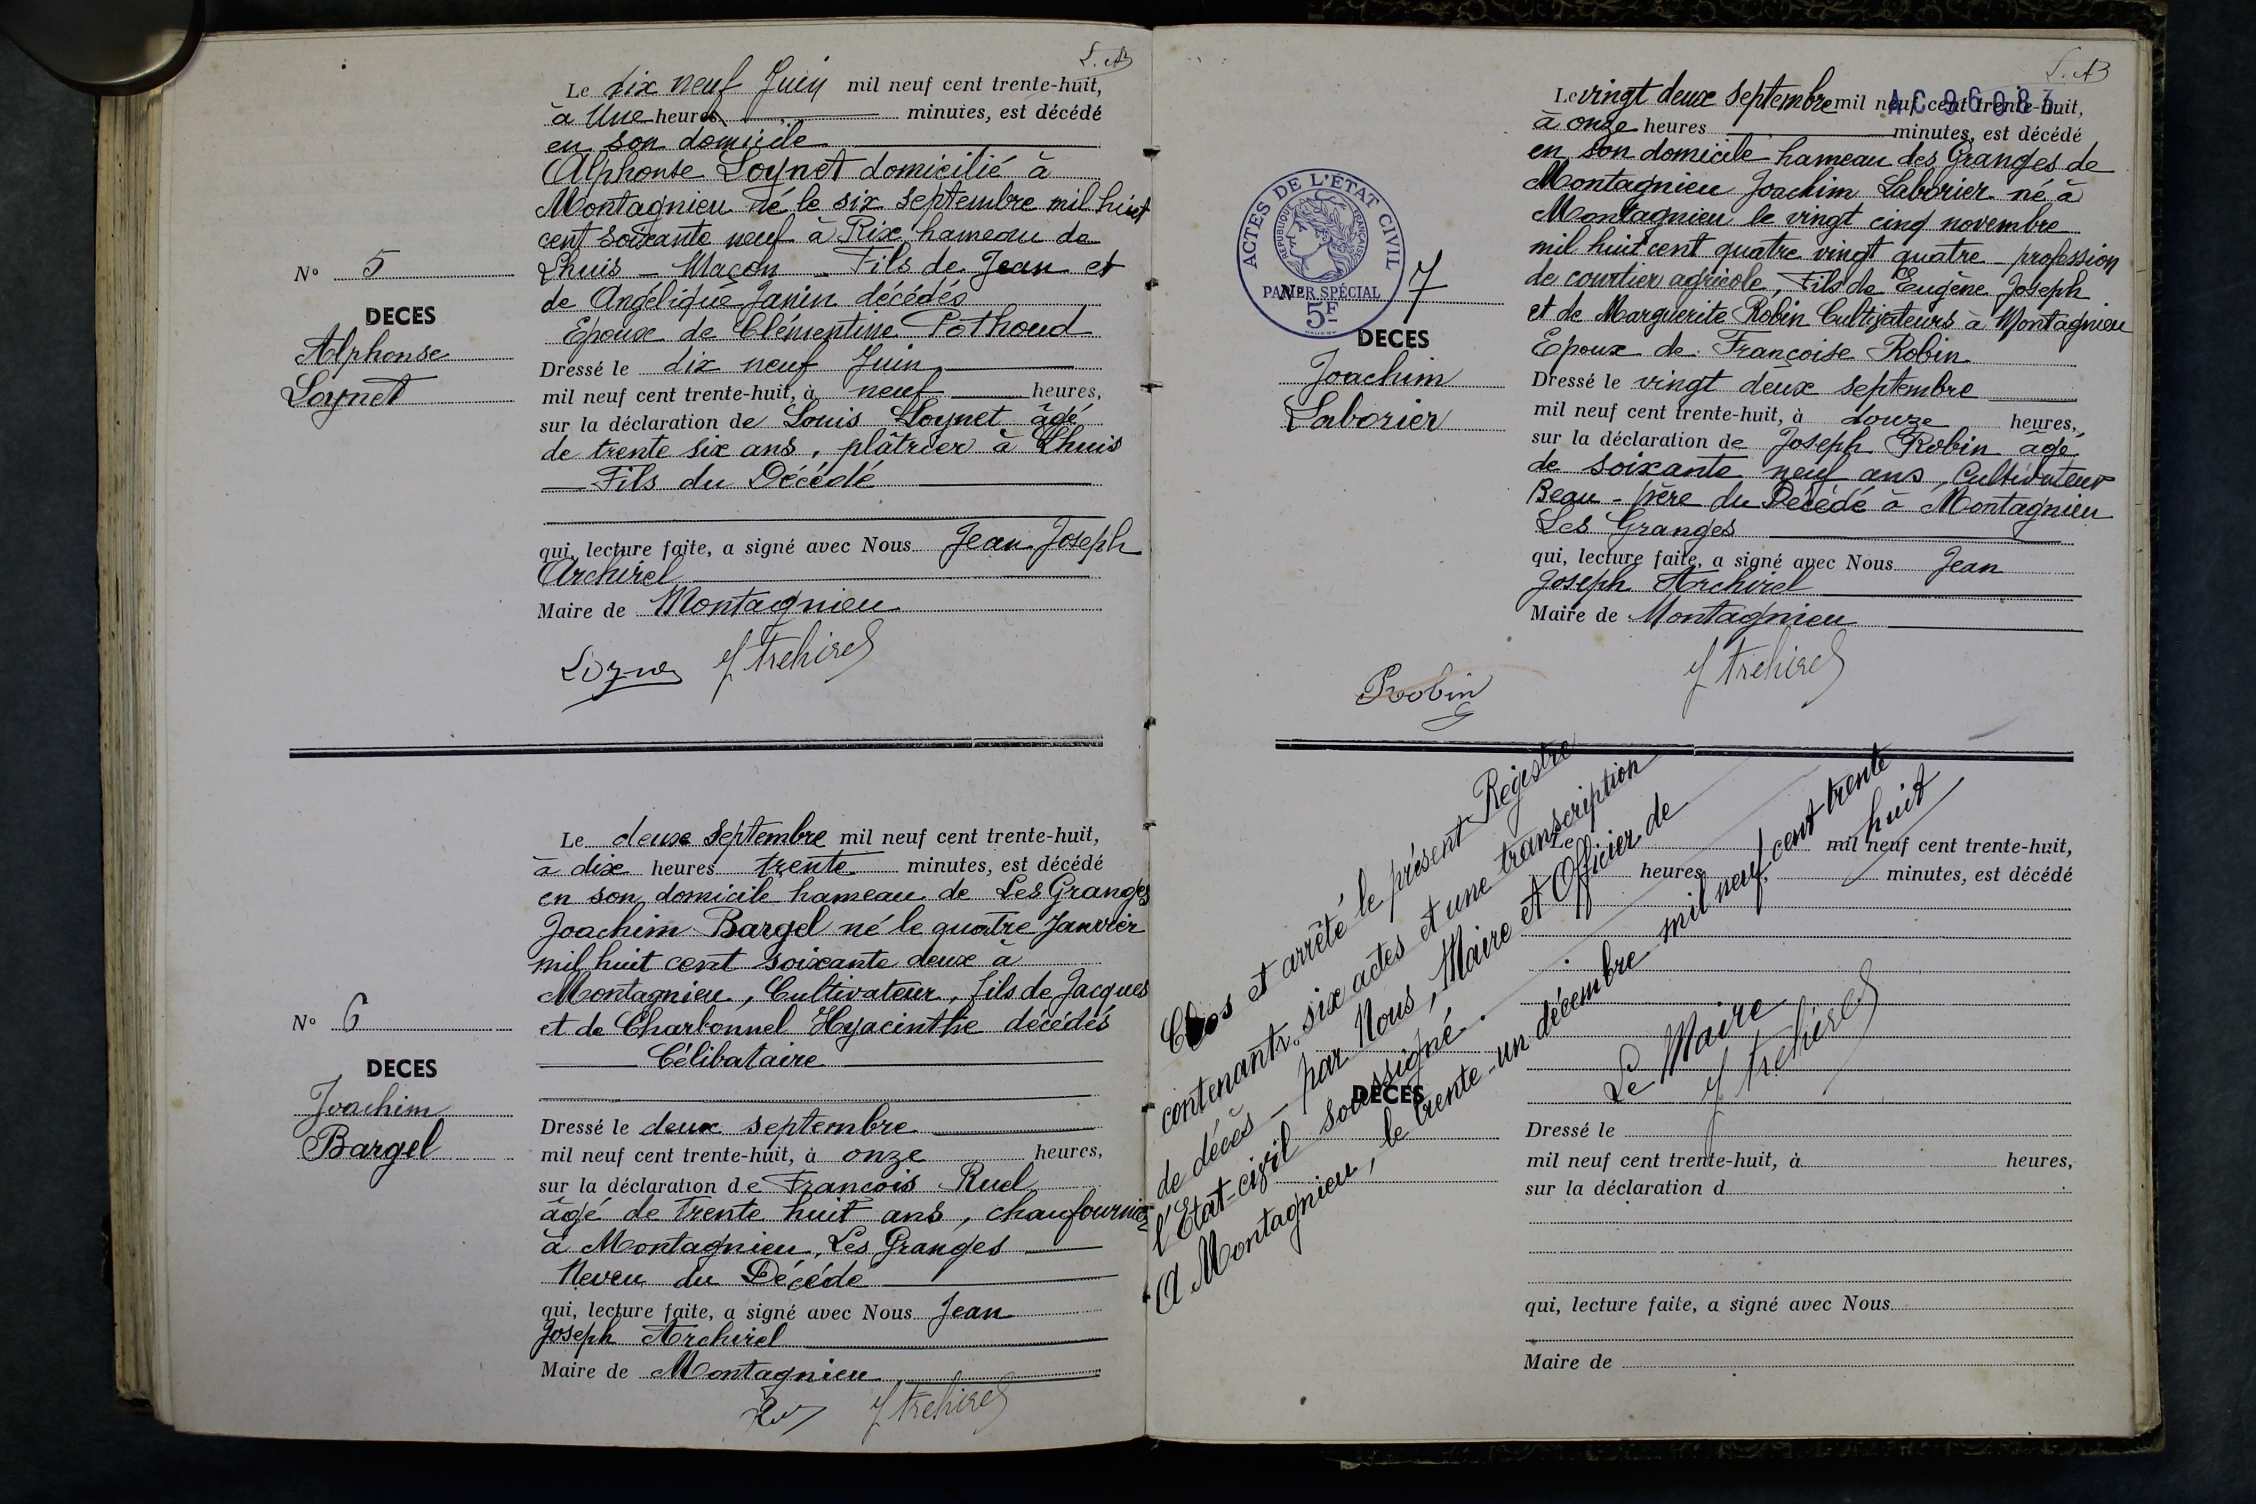 L. AB
Le dix neuf Juin mil neuf cent trente-huit,
à Une heures minutes, est décédé
en son domicile
Alphonse Loynet domicilié à
Montagnieu né le six septembre mil huit
cent soixante neuf à Rix hameau de
Lhuis - Maçon - Fils de Jean et
de Angélique Janin décédés
Epoux de Clémentine Pothoud
Dressé le dix neuf Juin
mil neuf cent trente-huit, à neuf heures,
sur la déclaration de Louis Loynet âgé
de trente six ans, plâtrier à Lhuis
Fils du Décédé
qui, lecture faite, a signé avec Nous Jean Joseph
Archirel
Maire de Montagnieu
Loynet J Archirel
N° 5
DECES
Alphonse
Loynet
Le deux septembre mil neuf cent trente-huit,
à dix heures trente minutes, est décédé
en son domicile hameau de Les Granges
Joachim Bargel né le quatre Janvier
mil huit cent soixante deux à
Montagnieu, Cultivateur, fils de Jacques
et de Charbonnel Hyacinthe décédés
Célibataire
Dressé le deux septembre
mil neuf cent trente-huit, à onze heures,
sur la déclaration de Francois Ruel
âgé de trente huit ans, chaufournier
à Montagnieu, Les Granges
Neveu du Décédé
qui, lecture faite, a signé avec Nous Jean
Joseph Archirel
Maire de Montagnieu
J Archirel
N° 6
DECES
Joachim
Bargel
L. AB
AC96083
Le vingt deux septembre mil neuf cent trente-huit,
à onze heures minutes, est décédé
en son domicile hameau des Granges de
Montagnieu Joachim Laborier né à
Montagnieu le vingt cinq novembre
mil huit cent quatre vingt quatre - profession
de courtier agricole, Fils de Eugène Joseph
et de Marguerite Robin Cultivateurs à Montagnieu
Epoux de Françoise Robin
Dressé le vingt deux septembre
mil neuf cent trente-huit, à douze heures,
sur la déclaration de Joseph Robin âgé
de soixante neuf ans, Cultivateur
Beau-père du Décédé à Montagnieu
Les Granges
qui, lecture faite, a signé avec Nous Jean
Joseph Archirel
Maire de Montagnieu
Robin J Archirel
ACTES DE L'ÉTAT CIVIL
RÉPUBLIQUE FRANÇAISE
PAPIER SPÉCIAL
5F
N° 7
DECES
Joachim
Laborier
Clos et arrêté le présent Registre
contenant six actes et une transcription
de décès - par Nous, Maire et Officier de
l'Etat-civil soussigné.
A Montagnieu, le trente-un décembre mil neuf cent trente
huit
Le Maire
J Archirel
DECES
Le mil neuf cent trente-huit,
heures minutes, est décédé
Dressé le
mil neuf cent trente-huit, à heures,
sur la déclaration d
qui, lecture faite, a signé avec Nous
Maire de